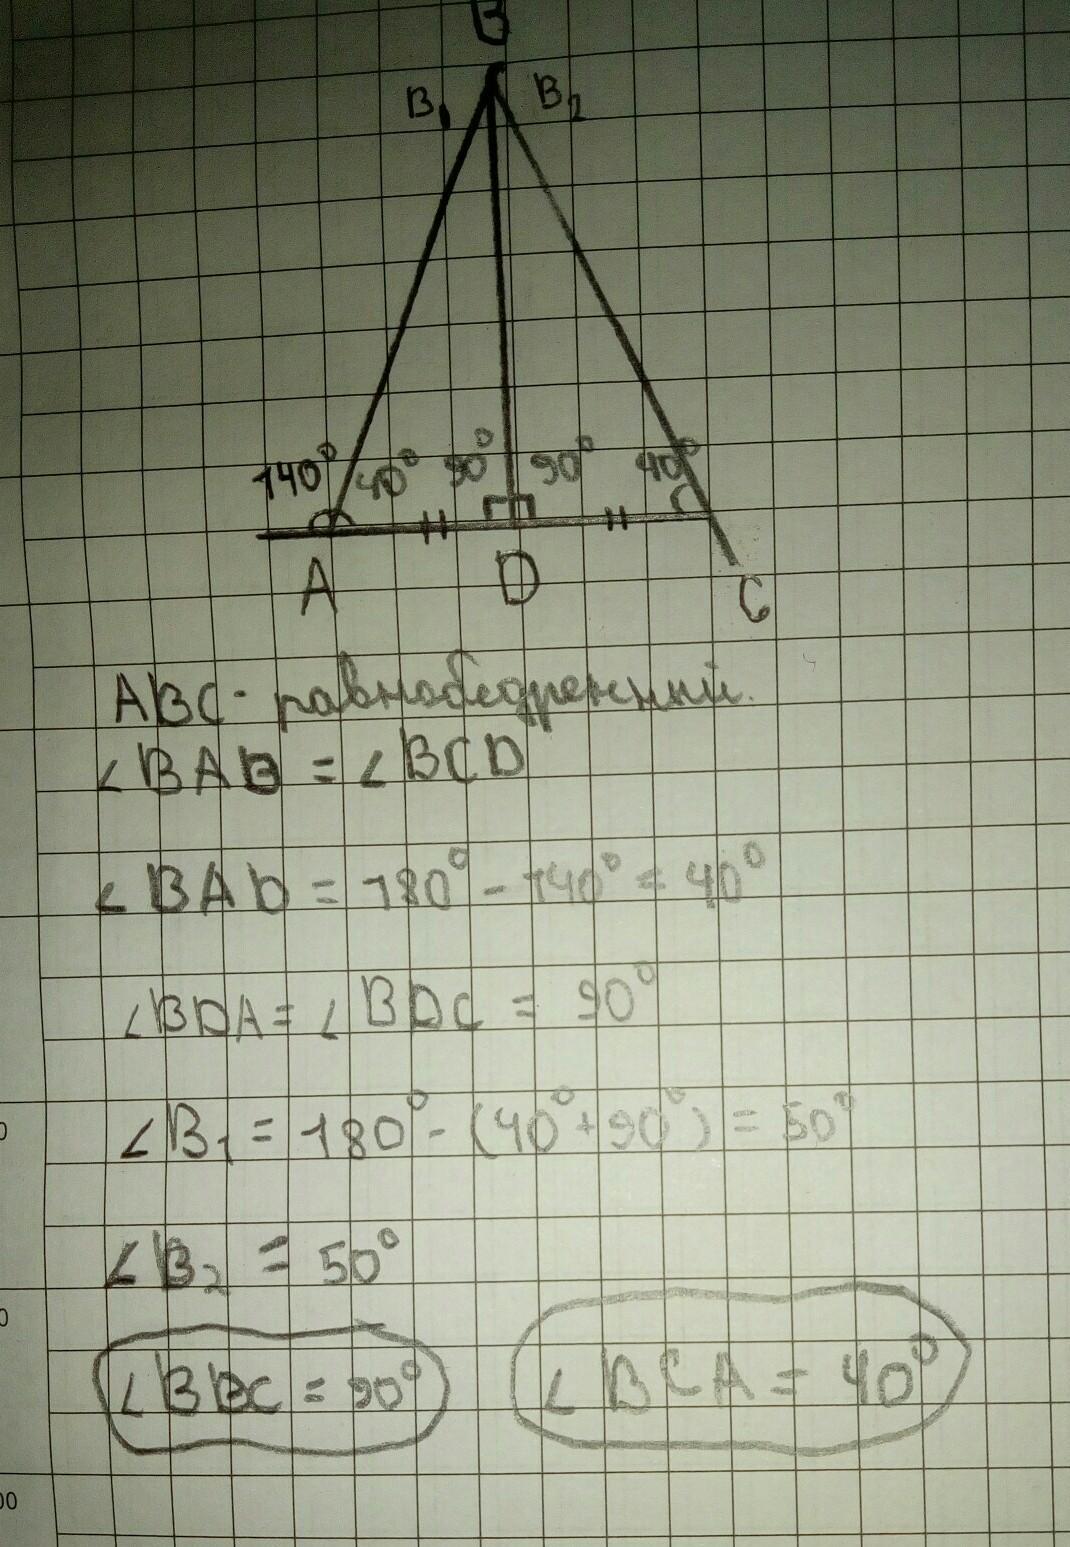 B
B₁ B₂
140° 40° 90° 90° 40°
A D C
ABC - равнобедренный.
∠BAD = ∠BCD
∠BAD = 180° - 140° = 40°
∠BDA = ∠BDC = 90°
∠B₁ = 180° - (40° + 90°) = 50°
∠B₂ = 50°
∠BDC = 90° ∠BCA = 40°
0
0
00